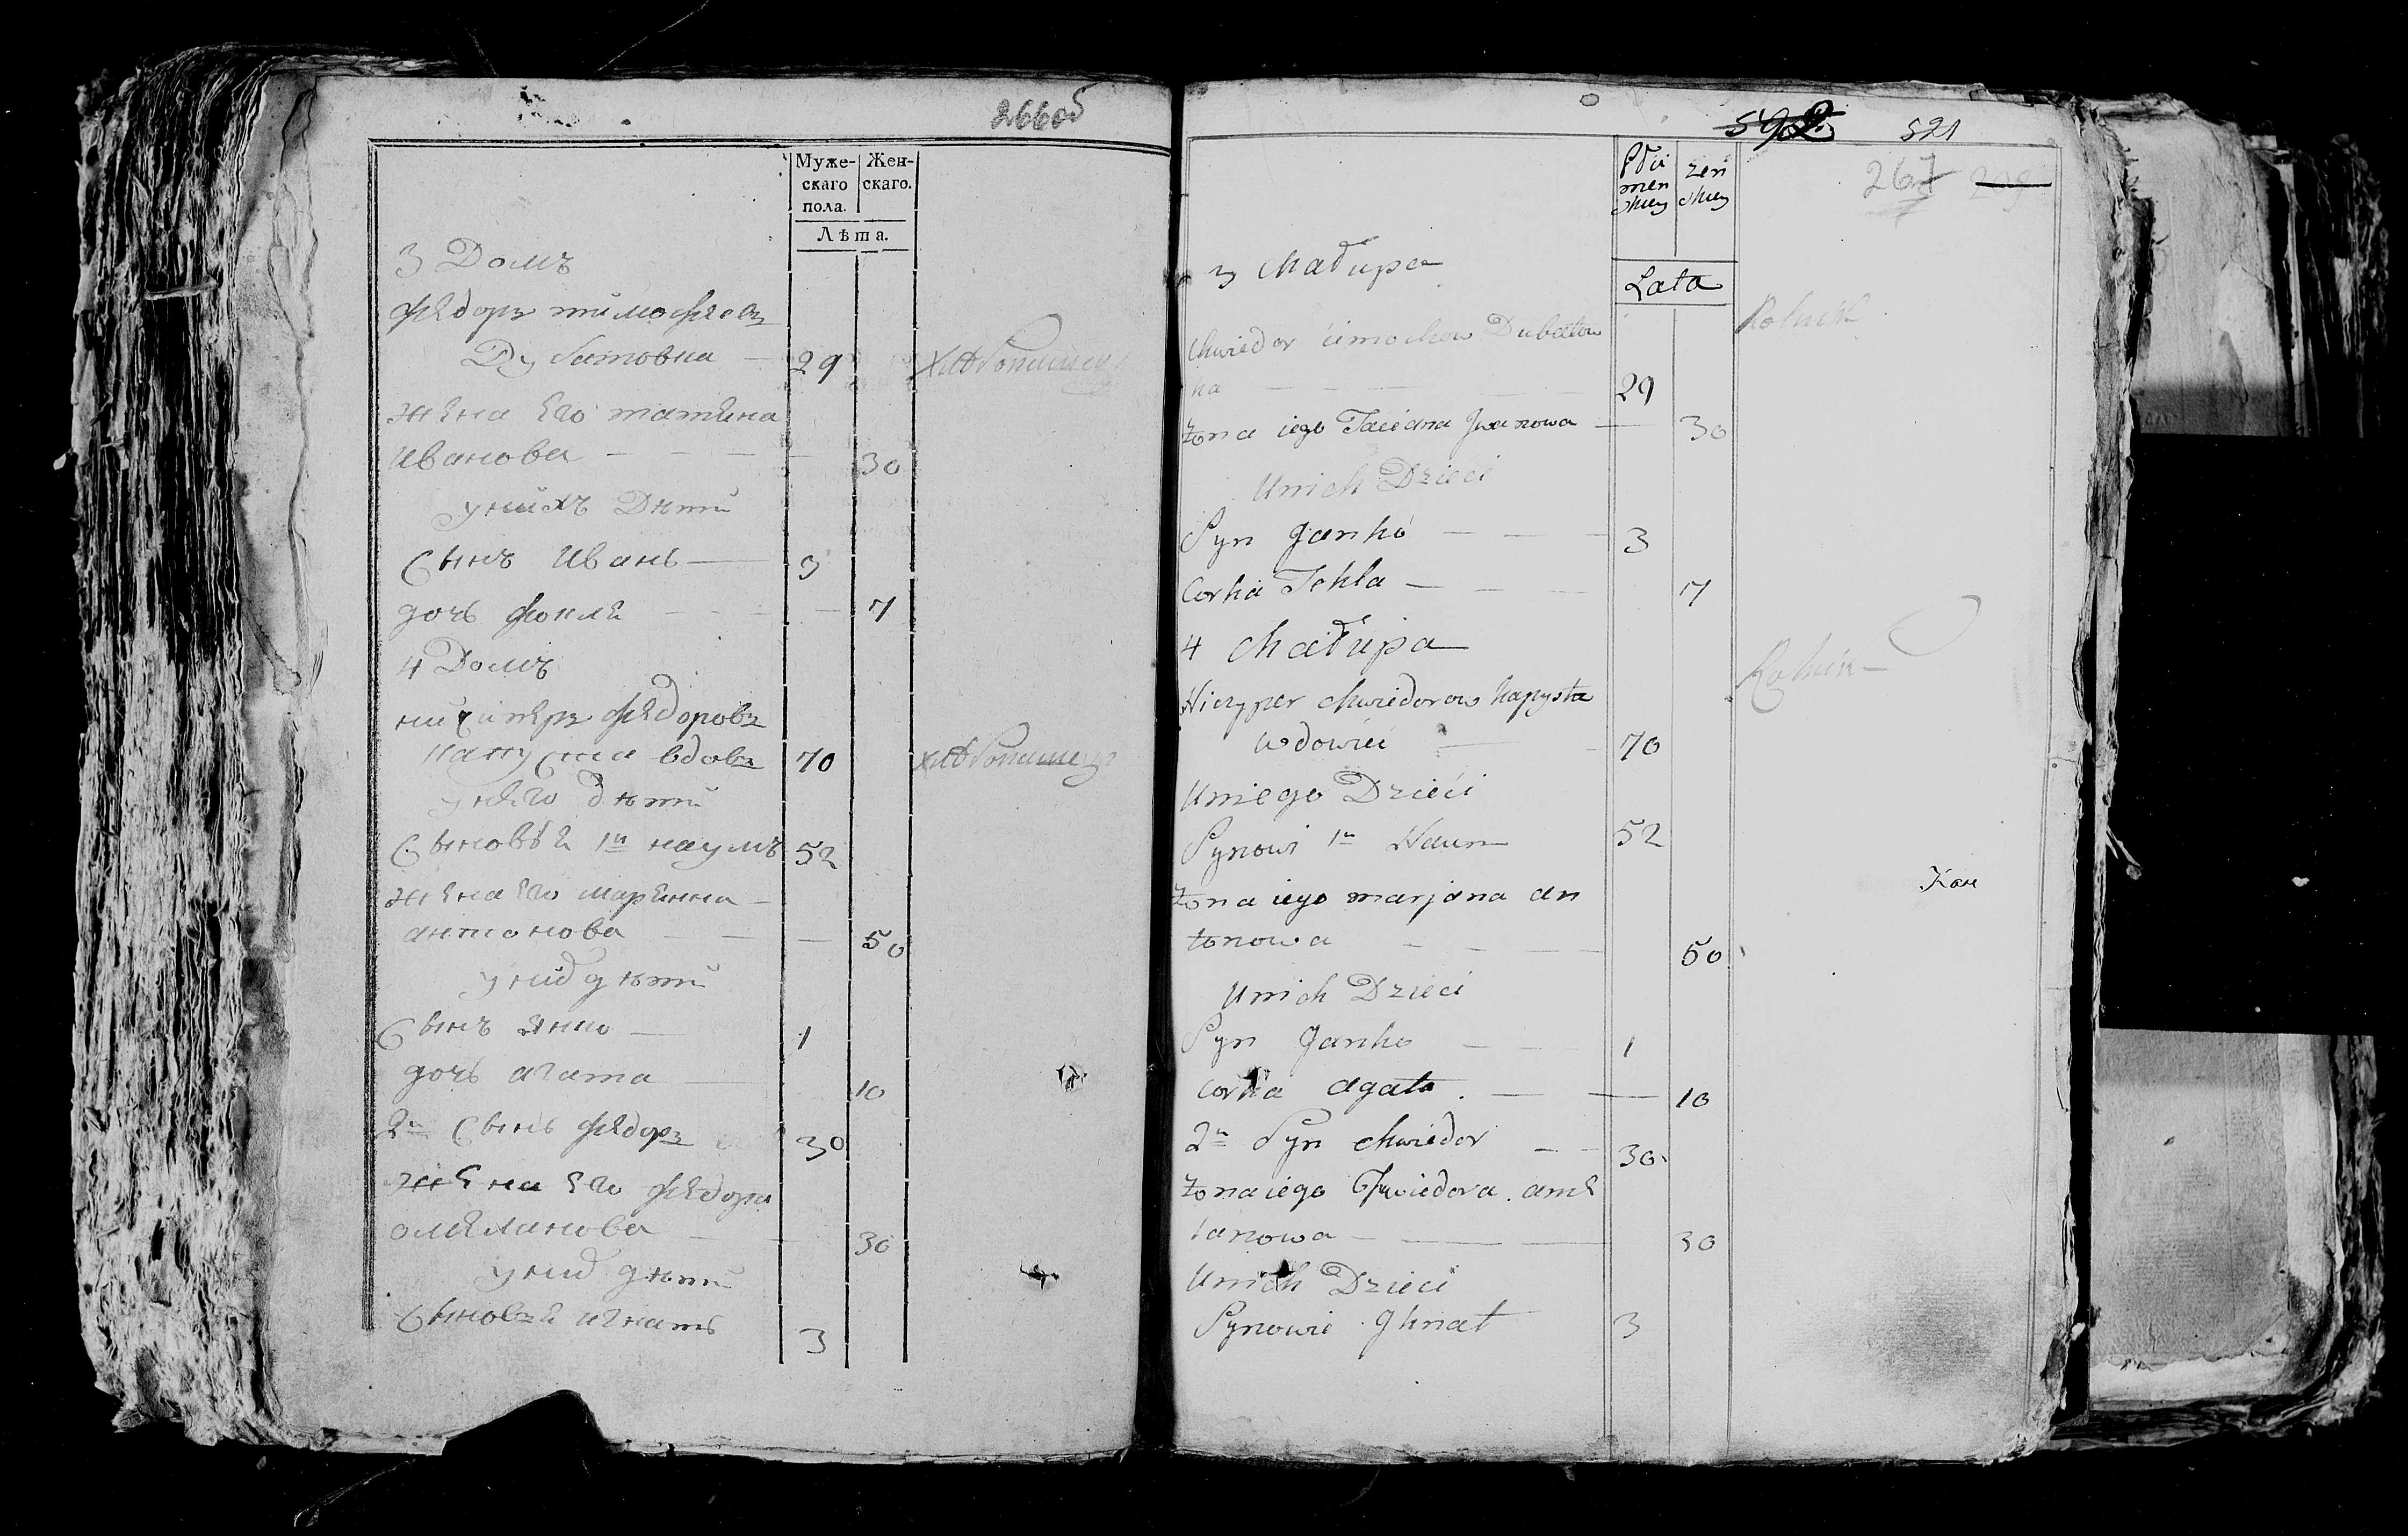 266об
Муже-
скаго
пола.
Жен-
скаго.
Лѣта.
3 Домъ
Федоръ тимофеевъ
Дубатовка — 29 хлѣбопашец
жена Его татяна
Иванова — — — — 30
у нихъ Дѣти
Сынъ Иванъ — 3
дочь Фекла — — — 7
4 Домъ
ничиперъ Федоровъ
Капуста вдовъ 70 хлѣбопашецъ
у него дѣти
Сыновья 1й наумъ 52
жена Его Марянна —
антонова — — — 50
у них дѣти
Сынъ Янко — 1
дочь агата — 10
2й Сынъ Федоръ 30
жена Его Федора
омеланова — — 30
у них дѣти
Сыновья игнатъ 3
592 521
267
Płci
men
skiey
żeń
skiey
Lata
3 Chałupa
Rolnik
Chwiedor cimochow Dubatow
ka — — — 29
Żona iego Taciana Jwanowa — 30
Unich Dzieci
Syn Janko — — — 3
Corka Tekla — — — 7
4 Chałupa
Rolnik
Niczyper chwiedorow kapusta
wdowiec — — 70
Uniego Dzieci
Synowi 1n Naum 52
Żona iego marjana an
tonowa — — — 50
Unich Dzieci
Syn Janko — — 1
Corka agata. — — 10
2n Syn chwiedor — — 30
Żona iego Chwiedora. ame
lanowa — — — 30
Unich Dzieci
Synowie Ihnat 3